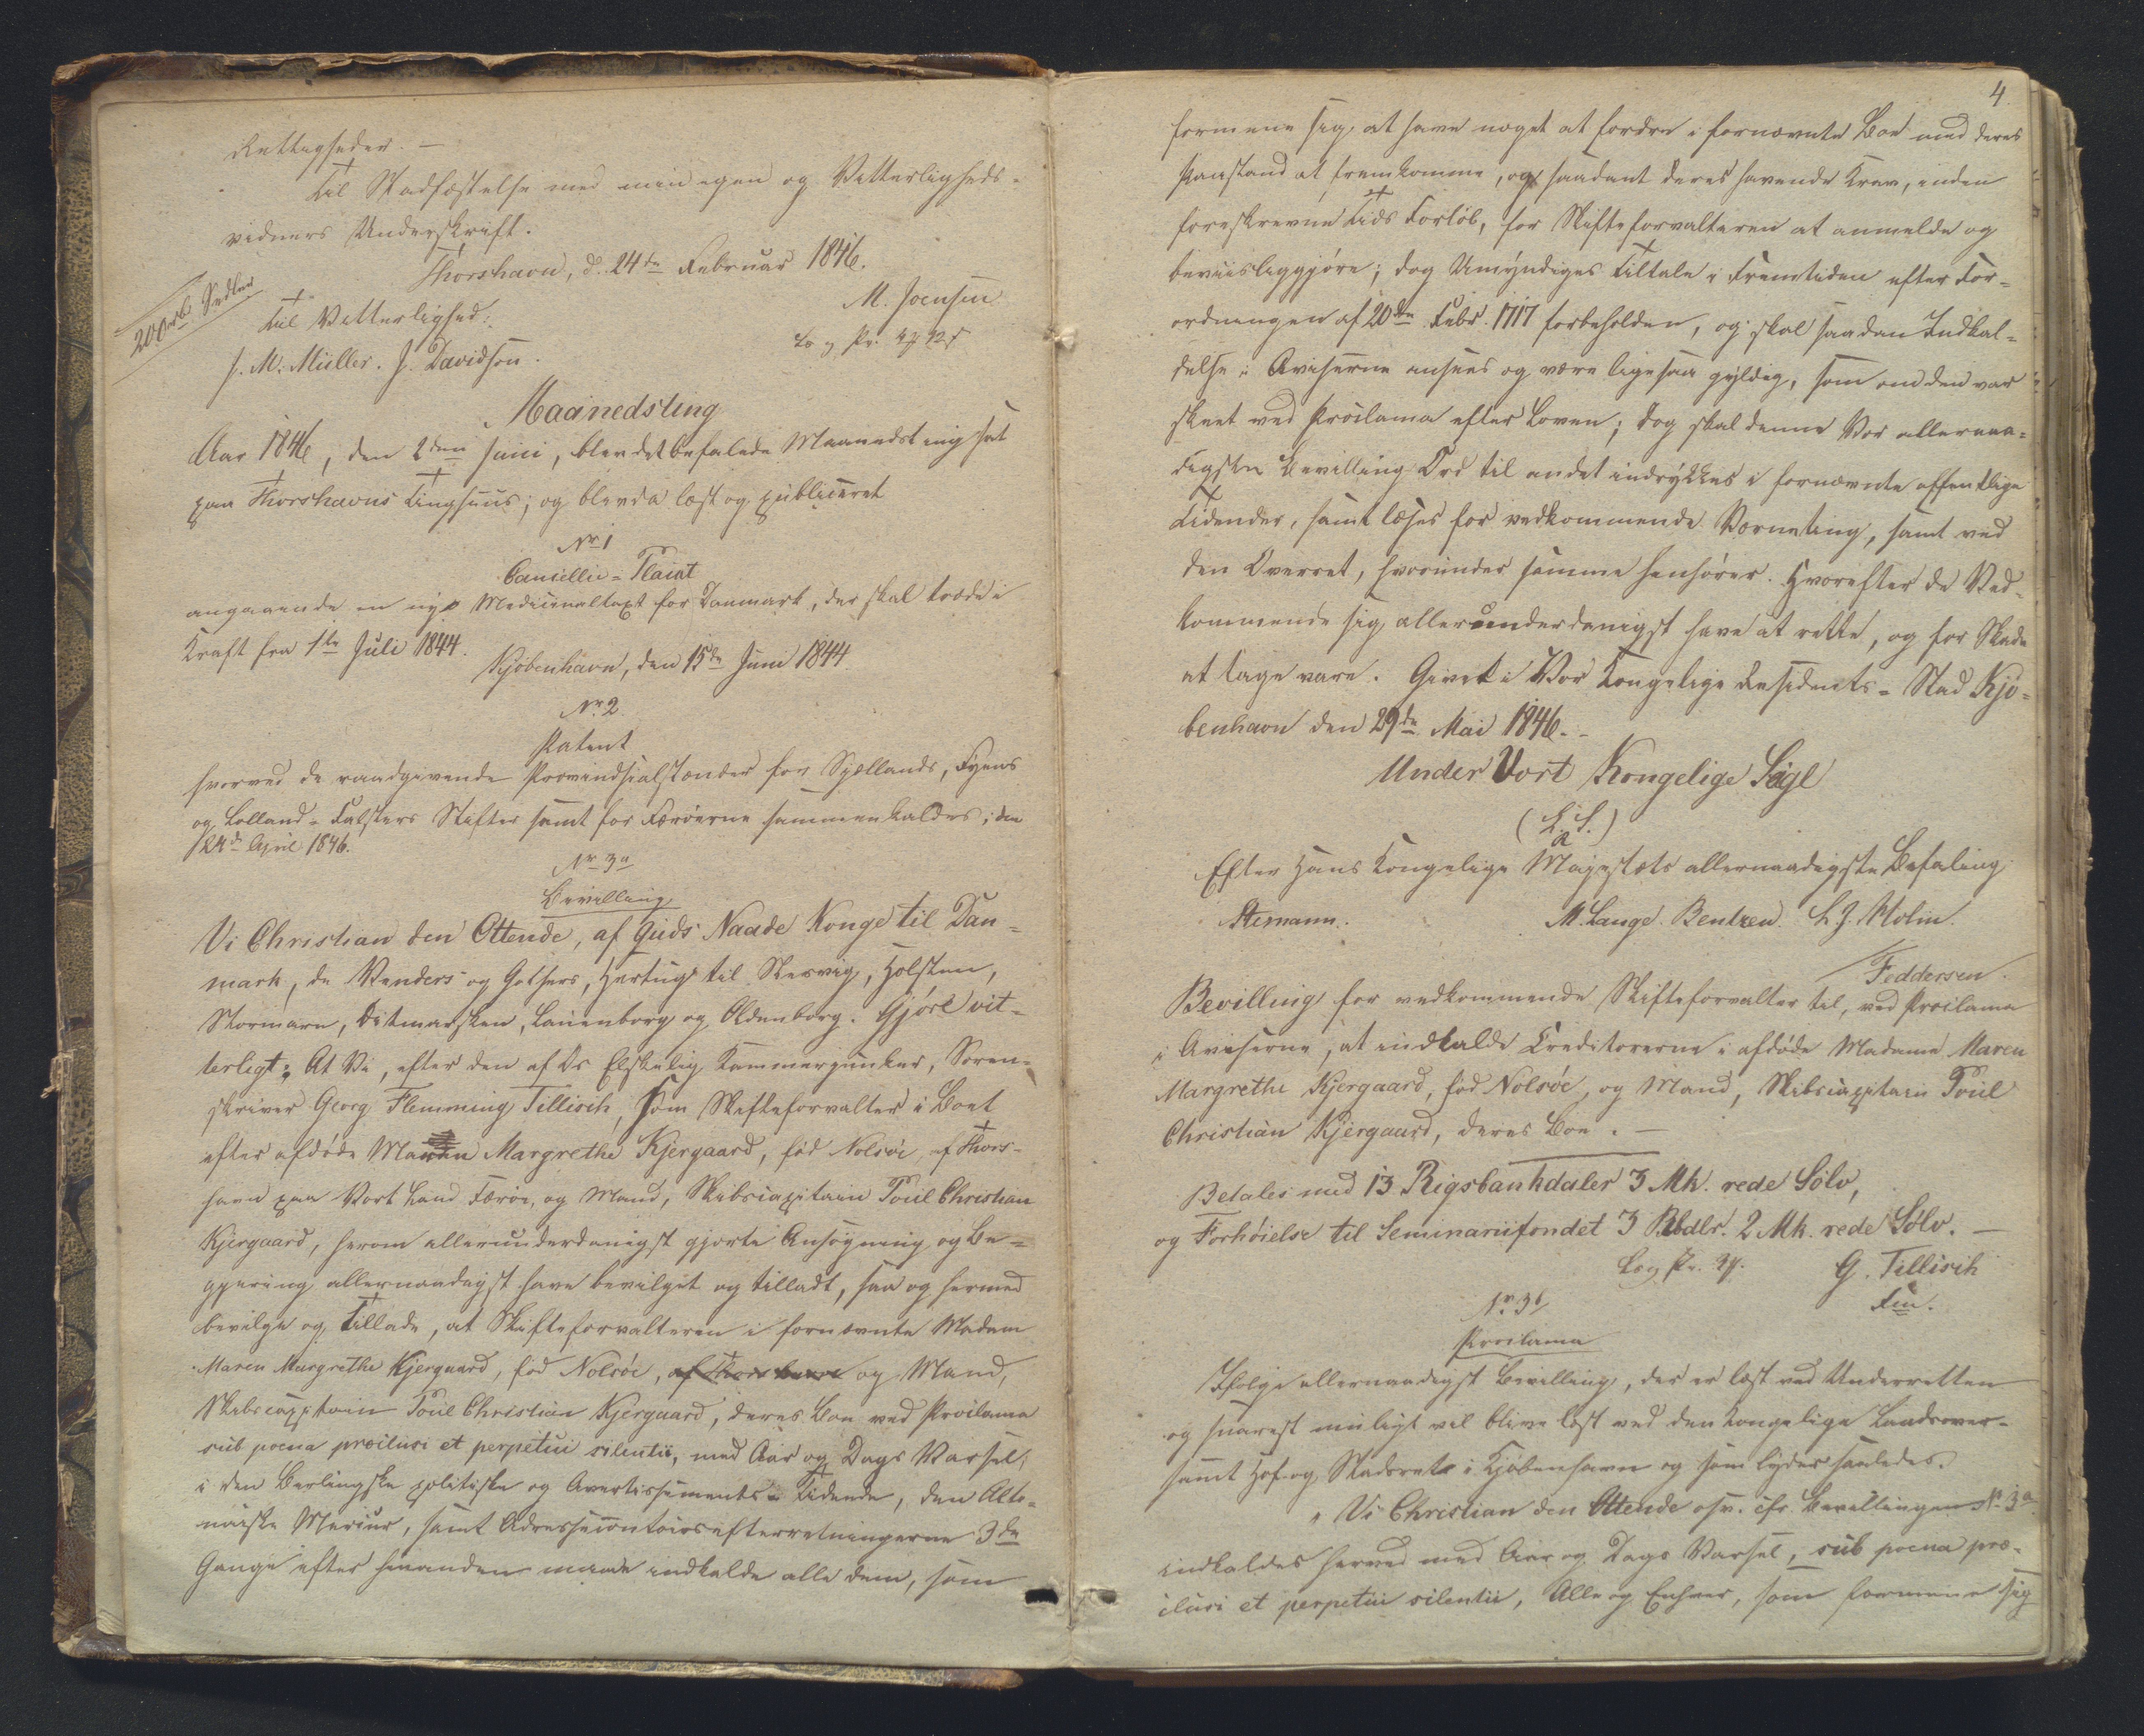 Rettigheder. —
Til Stadfæstelse med min egen og Vitterligheds-
vidners Underskrift.
Thorshavn, d. 24de Februar 1846.
M. Joensen
200 rb Sedler
Til Vitterlighed:
J. M. Müller. J. Davidsen.
Maanedsting
Aar 1846, den 2den Juni, blev det befalede Maanedsting sat
paa Thorshavns Tinghuus; og blev da læst og publiceret
No 1
Cancellie-Placat
angaaende en nye Medicinaltaxt for Danmark, der skal træde i
Kraft fra 1te Juli 1844.
Kjöbenhavn, den 15de Juni 1844.
No 2
Patent
hvorved de raadgivende Provindsialstænder for Sjællands, Fyens
og Lolland-Falsters Stifter samt for Færöerne sammenkaldes; den
24de April 1846.
No 3a
Bevilling
Vi Christian den Ottende, af Guds Naade Konge til Dan-
mark, de Venders og Gothers, Hertug til Slesvig, Holsten,
Stormarn, Ditmarsken, Lauenborg og Oldenborg. Gjöre vit-
terligt: At Vi, efter den af Os Elskelig Kammerjunker, Soren-
skriver Georg Flemming Tillisch, som Skifteforvalter i Boet
efter afdöde Maren Margrethe Kjergaard, föd Nolsöe, af Thors-
havn paa Vort Land Færöe, og Mand, Skibscapitain Poul Christian
Kjergaard, herom allerunderdanigst gjorte Ansögning og Be-
gjering allernaadigst have bevilget og tilladt, saa og hermed
bevilge og tillade, at Skifteforvalteren i fornævnte Madam
Maren Margrethe Kjergaard, föd Nolsöe, af Thorshavn og Mand,
Skibscapitain Poul Christian Kjergaard, deres Boe ved Proclama
sub poena præclusi et perpetui silentii, med Aar og Dags Varsel,
i den Berlingske politiske og Avertissements-Tidende, den Alto-
naiske Mercur, samt Adressecontoirsefterretningerne 3de
Gange efter hinanden maae indkalde alle dem, som
4
formene sig at have noget at fordre i fornævnte Boe med deres
Paastand at fremkomme, og saadant deres havende Krav, inden
foreskrevne Tids Forlöb, for Skifteforvalteren at anmelde og
beviisliggjöre; dog Umyndiges Tiltale i Fremtiden efter For-
ordningen af 20de Febr. 1717 forbeholden, og skal saadan Indkal-
delse i Aviserne ansees og være ligesaa gyldig, som om den var
skeet ved Proclama efter Loven; dog skal denne Vor allernaa-
digste Bevilling Ord til andet indrykkes i fornævnte offentlige
Tidender, samt læses for vedkommende Værneting, samt ved
den Overret, hvorunder samme henhörer. Hvorefter de Ved-
kommende sig allerunderdanigst have at rette, og for Skade
at tage vare. Givet i Vor Kongelige Residents-Stad Kjö-
benhavn den 29de Mai 1846. -
Under Vort Kongelige Segl
(L. S.)
Efter Hans Kongelige Majestæts allernaadigste Befaling
Stemann. M. Lange. Bentzen. L. J. Holm.
Feddersen.
Bevilling for vedkommende Skifteforvalter til, ved Proclama
i Aviserne, at indkalde Creditorerne i afdöde Madame Maren
Margrethe Kjergaard, föd Nolsöe, og Mand, Skibscapitain Poul
Christian Kjergaard, deres Boe. —
Betales med 13 Rigsbankdaler 3 Mk. rede Sölv,
og Forhöielse til Seminariifondet 3 Rbdlr. 2 Mk. rede Sölv. —
G. Tillisch
No 3b
Proclama
Ifölge allernaadigst Bevilling, der er læst ved Underretten
og snarest muligt vil blive læst ved den Kongelige Landsover-
samt Hof- og Stadsret i Kjöbenhavn og som lyder saaledes:
"Vi Christian den Ottende osv. cfr. Bevillingen No 3a
indkaldes herved med Aar og Dags Varsel, sub poena præ-
clusi et perpetui silentii, Alle og Enhver, som formene sig